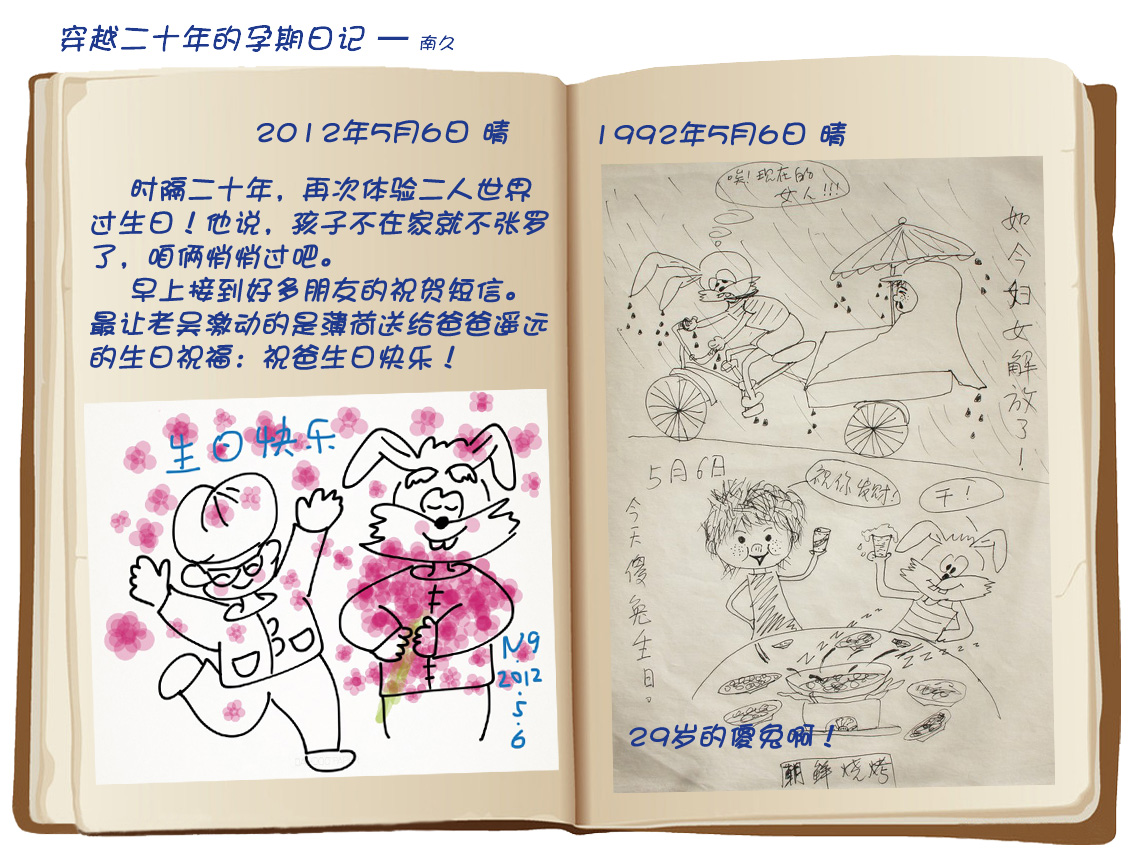 穿越二十年的孕期日记 — 南久
2012年5月6日 晴
时隔二十年，再次体验二人世界
过生日！他说，孩子不在家就不张罗
了，咱俩悄悄过吧。
早上接到好多朋友的祝贺短信。
最让老吴激动的是薄荷送给爸爸遥远
的生日祝福：祝爸生日快乐！
生日快乐
N.9
2012
.5
.6
1992年5月6日 晴
唉！现在的
女人！！！
如今妇女解放了！
5月6日
祝你发财！
干！
今天傻兔生日。
29岁的傻兔啊！
朝鲜烧烤